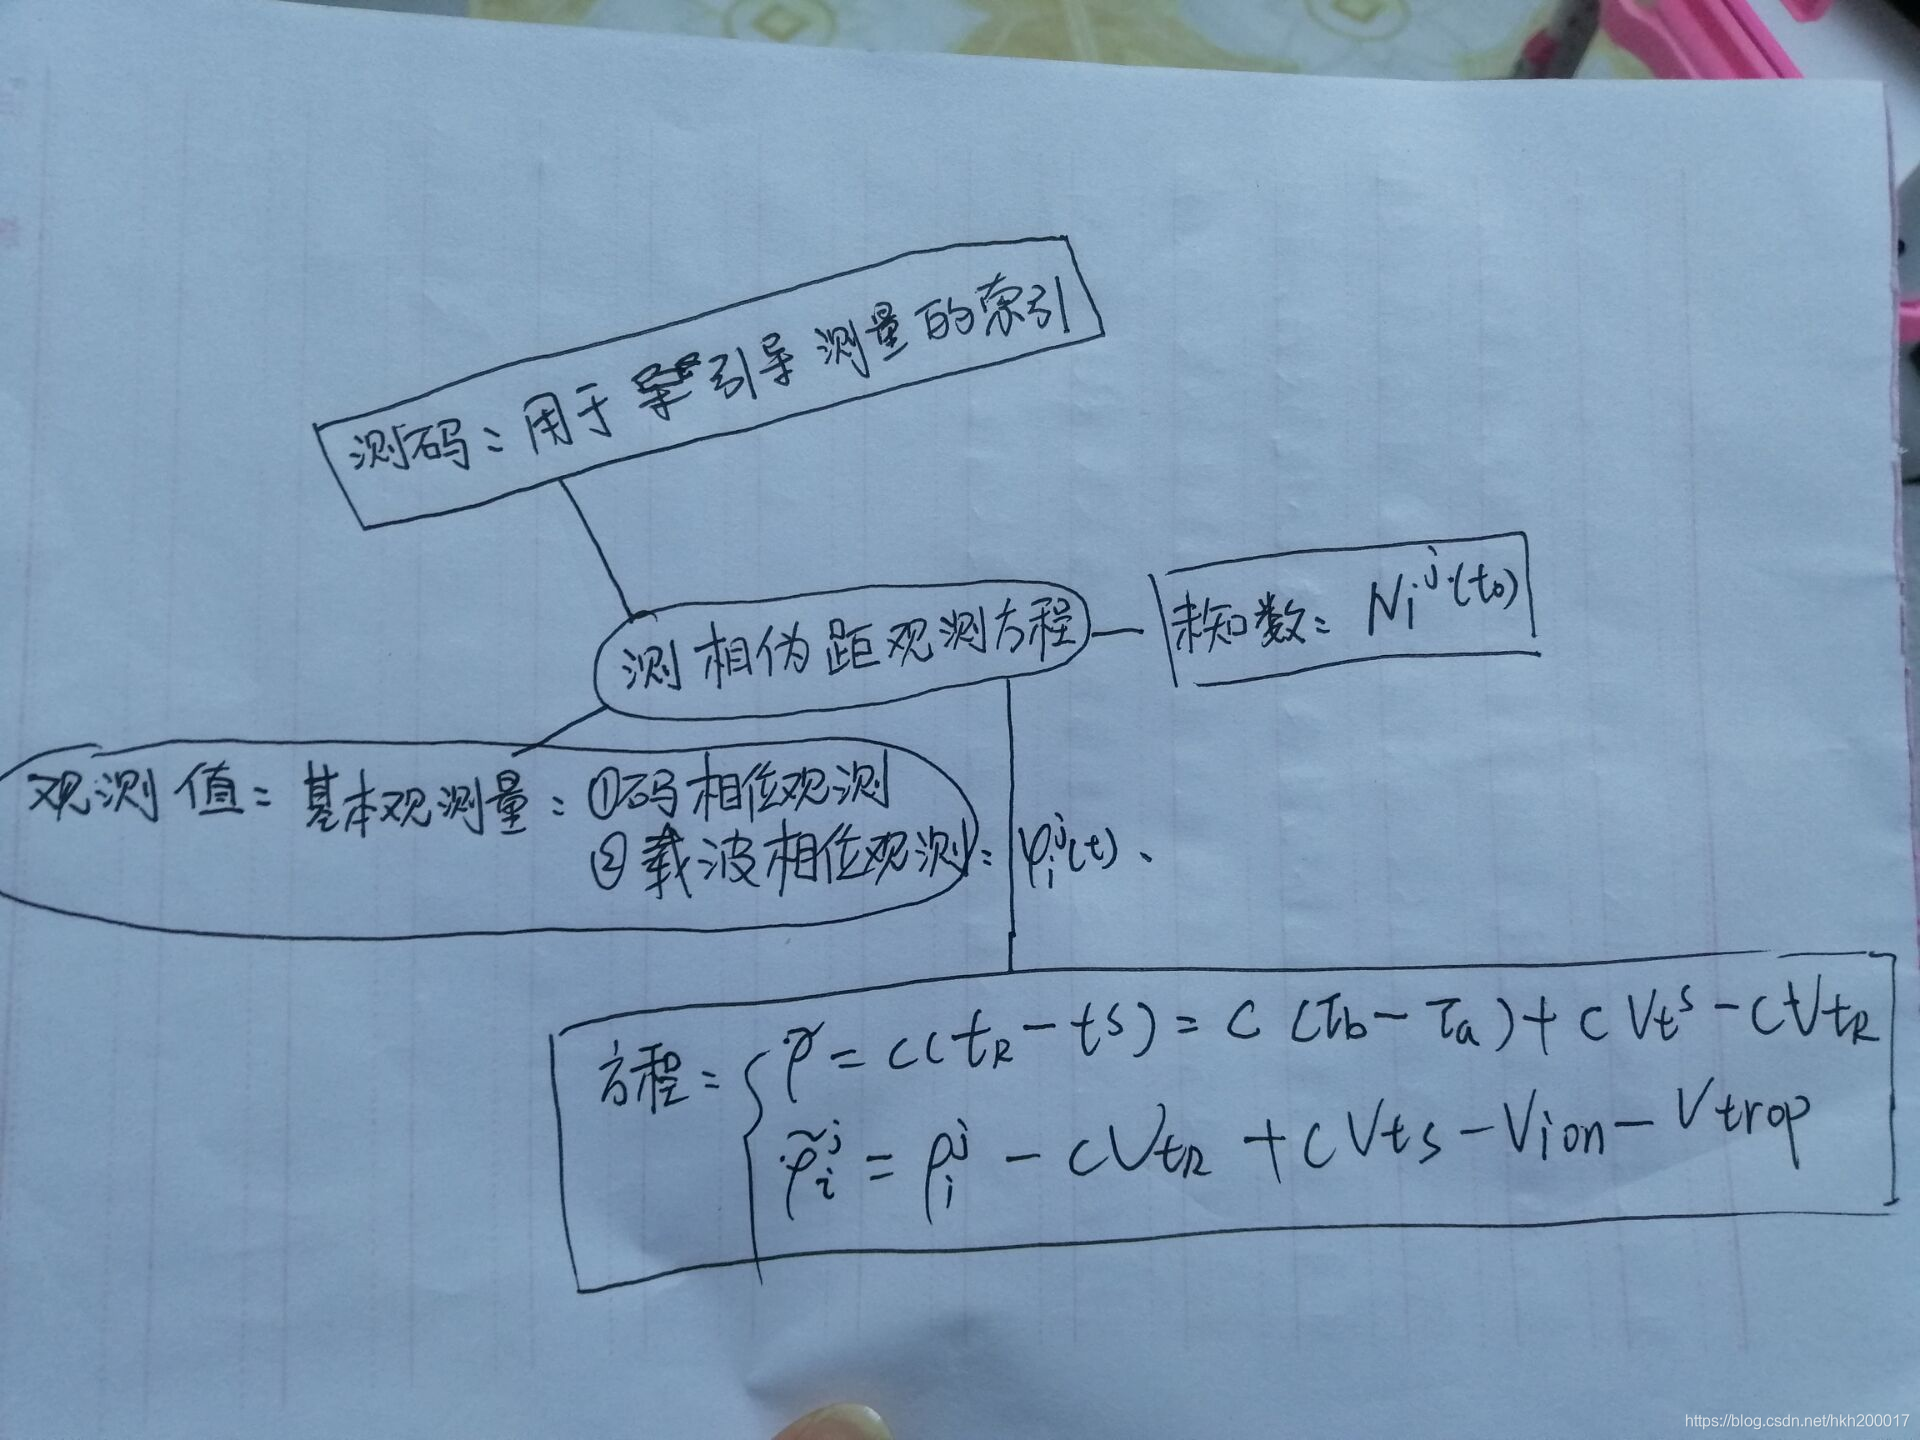 测码：用于引导测量的索引
测相伪距观测方程
未知数：N_i^j(t₀)
观测值：基本观测量：①码相位观测
②载波相位观测：φ_i^j(t)、
方程：
ρ̃ = c(t_R - t^S) = c(τ_b - τ_a) + cV_t^S - cV_{t_R}
ρ̃_i^j = ρ_i^j - cV_{t_R} + cV_{t_S} - V_{ion} - V_{trop}
https://blog.csdn.net/hkh200017